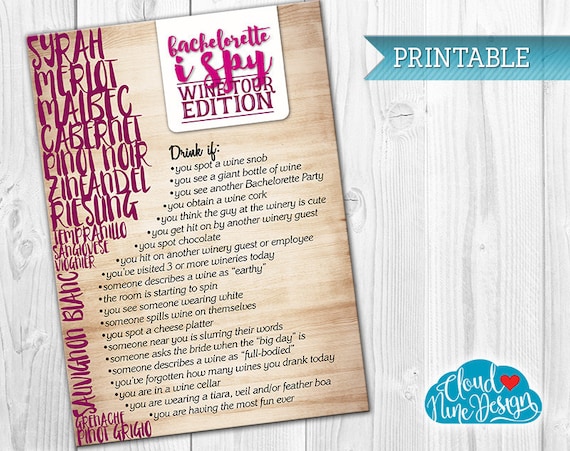 PRINTABLE
bachelorette
i spy
WINE TOUR
EDITION
SYRAH
MERLOT
MALBEC
CABERNET
PINOT NOIR
ZINFANDEL
RIESLING
TEMPRANILLO
SANGIOVESE
VIOGNIER
SAUVIGNON BLANC
GRENACHE
PINOT GRIGIO
Drink if:
•you spot a wine snob
•you see a giant bottle of wine
•you see another Bachelorette Party
•you obtain a wine cork
•you think the guy at the winery is cute
•you get hit on by another winery guest
•you spot chocolate
•you hit on another winery guest or employee
•you've visited 3 or more wineries today
•someone describes a wine as "earthy"
•the room is starting to spin
•you see someone wearing white
•someone spills wine on themselves
•you spot a cheese platter
•someone near you is slurring their words
•someone asks the bride when the "big day" is
•someone describes a wine as "full-bodied"
•you've forgotten how many wines you drank today
•you are in a wine cellar
•you are wearing a tiara, veil and/or feather boa
•you are having the most fun ever
Cloud
Nine Design